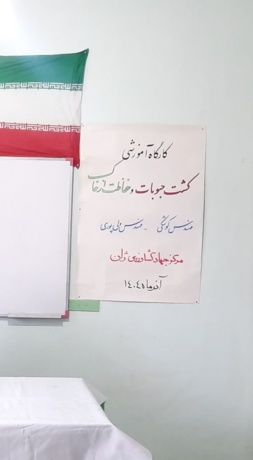 کارگاه آموزشی
کشت حبوبات و حفاظت خاک
مهندس کوشکی - مهندس ولی پوری
مرکز جهاد کشاورزی زان
آذرماه ۱۴۰۴